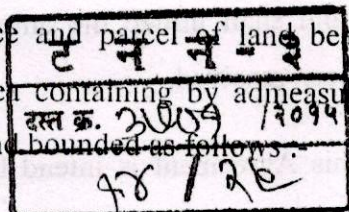 ce and parcel of land be
ट न न - ५
en containing by admeasu
दस्त क्र. ३७०१ /२०१५
nd bounded as follows -
१४ / २८